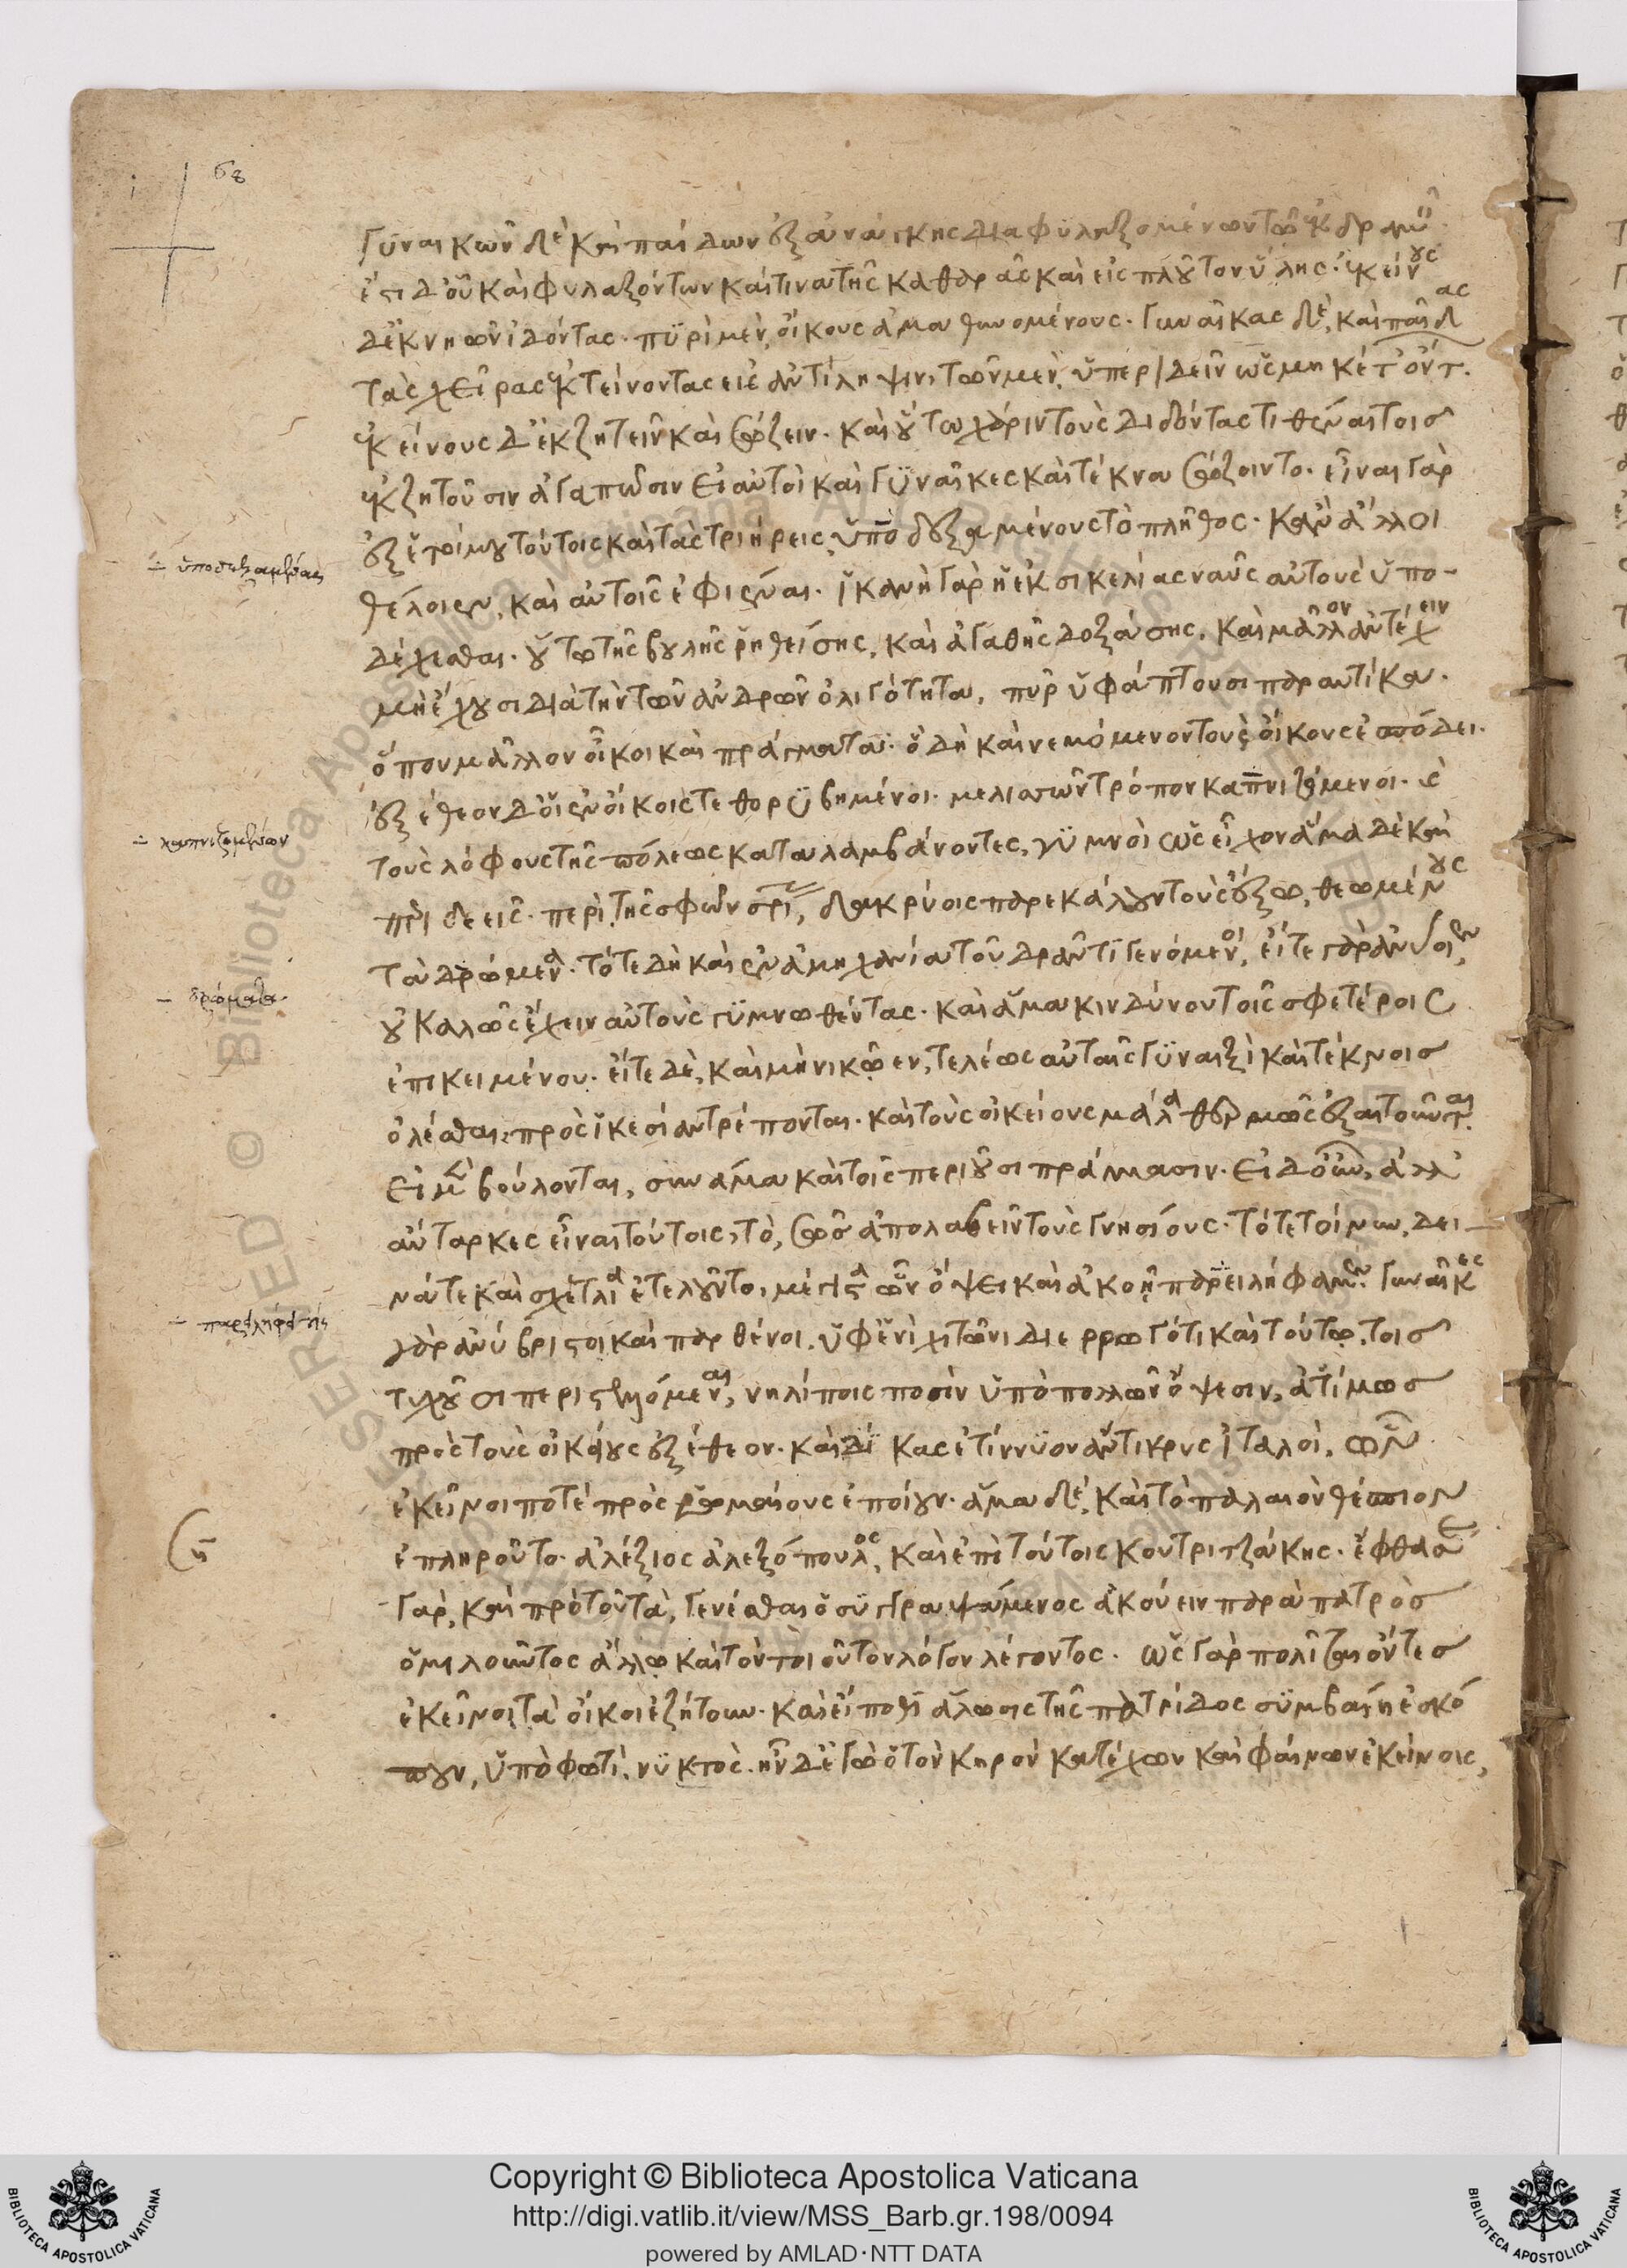 68
γυναικῶν δὲ καὶ παίδων ἐξ ἀνάγκης διαφυλαξομένων τῶ ἐκδραμεῖν
ἔτι δ' οὖν καὶ φυλαξόντων καί τινα τῆς καθαρᾶς καὶ εἰς πλοῦτον ὕλης. ἐκείνους
δ' ἐκ νηῶν ἰδόντας. πυρὶ μὲν, οἴκους ἀμαθυνομένους. γυναῖκας δὲ, καὶ παῖδας
τὰς χεῖρας ἐκτείνοντας εἰς ἀντίληψιν, τῶν μὲν, ὑπεριδεῖν ὡς μηκέτ' ὄντ.
ἐκείνους δ' ἐκζητεῖν καὶ σώζειν. καὶ οὕτω χάριν τοὺς διδόντας τιθέναι τοῖς
ἐκζητοῦσιν ἀγαπῶσιν εἰ αὐτοὶ καὶ γυναῖκες καὶ τέκνα σώζοιντο. εἶναι γὰρ
ἐξ ἑτοίμου τούτοις καὶ τὰς τριήρεις, ὑποδεξαμένους τὸ πλῆθος. κἂν ἄλλοι
ὑποδεξαμένας
θέλοιεν, καὶ αὐτοῖς ἐφιέναι. ἱκανὴ γὰρ ἡ ἐκ σικελίας ναῦς αὐτοὺς ὑπο-
δέχεσθαι. οὕτω τῆς βουλῆς ῥηθείσης, καὶ ἀγαθῆς δοξάσης. καὶ μᾶλλον ἀντέχειν
μὴ ἔχουσι διὰ τὴν τῶν ἀνδρῶν ὀλιγότητα, πῦρ ὑφάπτουσι παραυτίκα.
ὅπου μᾶλλον οἶκοι καὶ πράγματα. ὃ δὴ καὶ νεμόμενον τοὺς οἴκους ἐπόδει.
ἐξέθεον δ' οἱ ἐν οἴκοις τεθορυβημένοι. μελισσῶν τρόπον καπνιζόμενοι. καὶ
καπνιζομένων
τοὺς λόφους τῆς πόλεως καταλαμβάνοντες, γυμνοὶ ὡς εἶχον ἅμα δὲ καὶ
περιδεεῖς. περὶ τῆς σφῶν σρίας, δακρύοις παρεκάλουν τοὺς ἔξω, θεωμένους
τὰ δρώμενα. τότε δὴ καὶ ἐν ἀμηχανία τοῦ δρᾶν τι γενόμενοι, εἴτε γὰρ ἀνδοῖεν,
δρώματα.
οὐ καλῶς ἔχειν αὐτοὺς γυμνωθέντας. καὶ ἅμα κινδύνου τοῖς σφετέροις
ἐπικειμένου. εἴτε δὲ, καὶ μὴ νικῶεν, τελέως αὐταῖς γυναιξὶ καὶ τέκνοις
ὀλέσθαι. πρὸς ἱκεσίαν τρέπονται. καὶ τοὺς οἰκείους μάλα θερμῶς ἐξαιτοῦνται.
εἰ μὲν βούλονται, σὺν ἅμα καὶ τοῖς περιοῦσι πράγμασιν. εἰ δ' οὖν, ἀλλ'
αὔταρκες εἶναι τούτοις, τὸ, σῶς ἀπολαβεῖν τοὺς γνησίους. τότε τοίνυν, δει-
νά τε καὶ σχέτλια ἐτελοῦντο, μέγιστα ὧν ὄψει καὶ ἀκοῇ παρειλήφαμεν. γυναῖκες
παρειλήφατις
γὰρ ἀνύβριστοι καὶ παρθένοι. ὑφ' ἑνὶ χιτῶνι διερρωγότι καὶ τούτω, τοῖς
τυχοῦσι περιστελλόμεναι, νηλίποις ποσὶν ὑπὸ πολλῶν ὄψεσιν, ἀτίμως
πρὸς τοὺς οἰκείους ἐξέθεον. καὶ δίκας ἐτίννυον ἄντικρυς ἰταλοὶ, ὧν
ἐκεῖνοι ποτὲ πρὸς ῥωμαίους ἐποίουν. ἅμα δὲ, καὶ τὸ παλαιὸν θέσπιον
ἐπληροῦτο. ἀλέξιος ἀλεξόπουλος, καὶ ἐπὶ τούτοις κουτριτζάκης. ἔφθασε
γὰρ, καὶ πρὸ τοῦ τὰ, γενέσθαι ὁ συγγραψάμενος ἀκούειν παρὰ πατρὸς
ὁμιλοῦντος ἄλλω καὶ τὸν τοιοῦτον λόγον λέγοντος. ὡς γὰρ πολῖται ὄντες
ἐκεῖνοι, τὰ οἴκοι ἐζήτουν. καὶ εἴ ποθι ἅλωσις τῆς πατρίδος συμβαίη ἐσκό
πουν, ὑπὸ φωτὶ, νυκτὸς. ἦν δ' ἐγὼ ὁ τὸν κηρὸν κατέχων καὶ φαίνων ἐκείνοις,
Copyright © Biblioteca Apostolica Vaticana
http://digi.vatlib.it/view/MSS_Barb.gr.198/0094
powered by AMLAD·NTT DATA
BIBLIOTECA APOSTOLICA VATICANA
BIBLIOTECA APOSTOLICA VATICANA